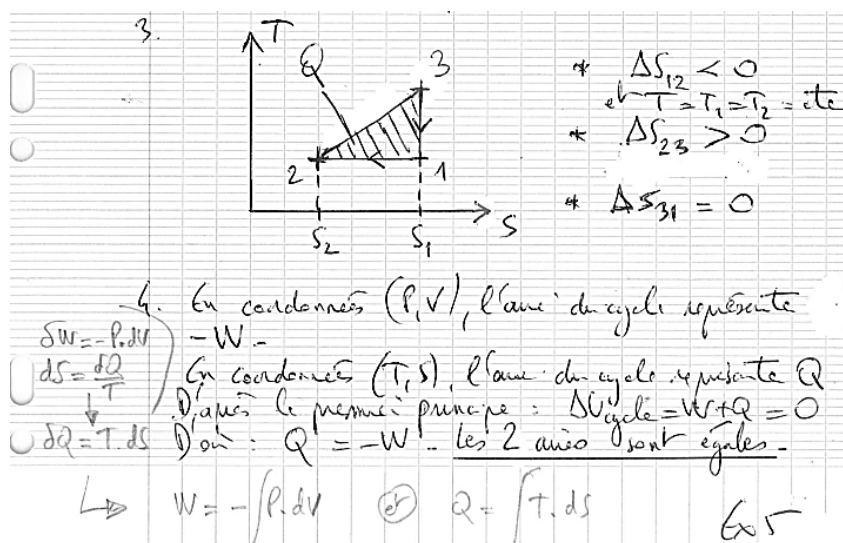 3.
T
Q
3
2
1
S₂
S₁
S
* ΔS₁₂ < 0
et T = T₁ = T₂ = cte
* ΔS₂₃ > 0
* ΔS₃₁ = 0
4. En coordonnées (P,V), l'aire du cycle représente
- W.
En coordonnées (T,S), l'aire du cycle représente Q
D'après le premier principe : ΔUcycle = W + Q = 0
D'où : Q = - W. Les 2 aires sont égales.
δW = - P.dV
dS = δQ/T
↓
δQ = T.dS
↳ W = - ∫P.dV et Q = ∫T.dS
Ex 5